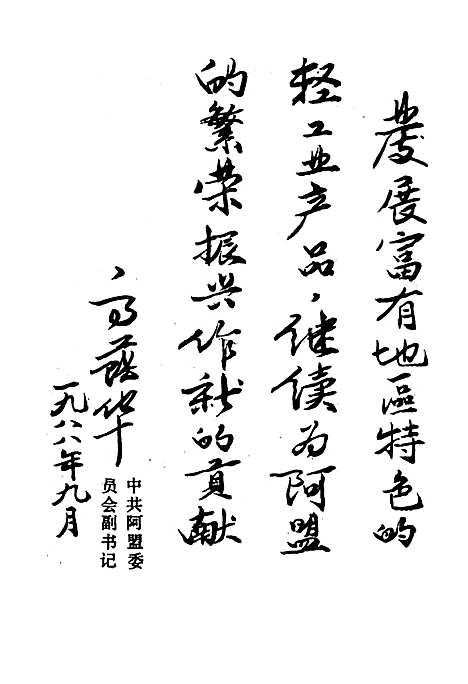 發展富有地區特色的
轻工业产品，继续为阿盟
的繁荣振兴作新的贡献
中共阿盟委
员会副书记
高华
一九八八年九月